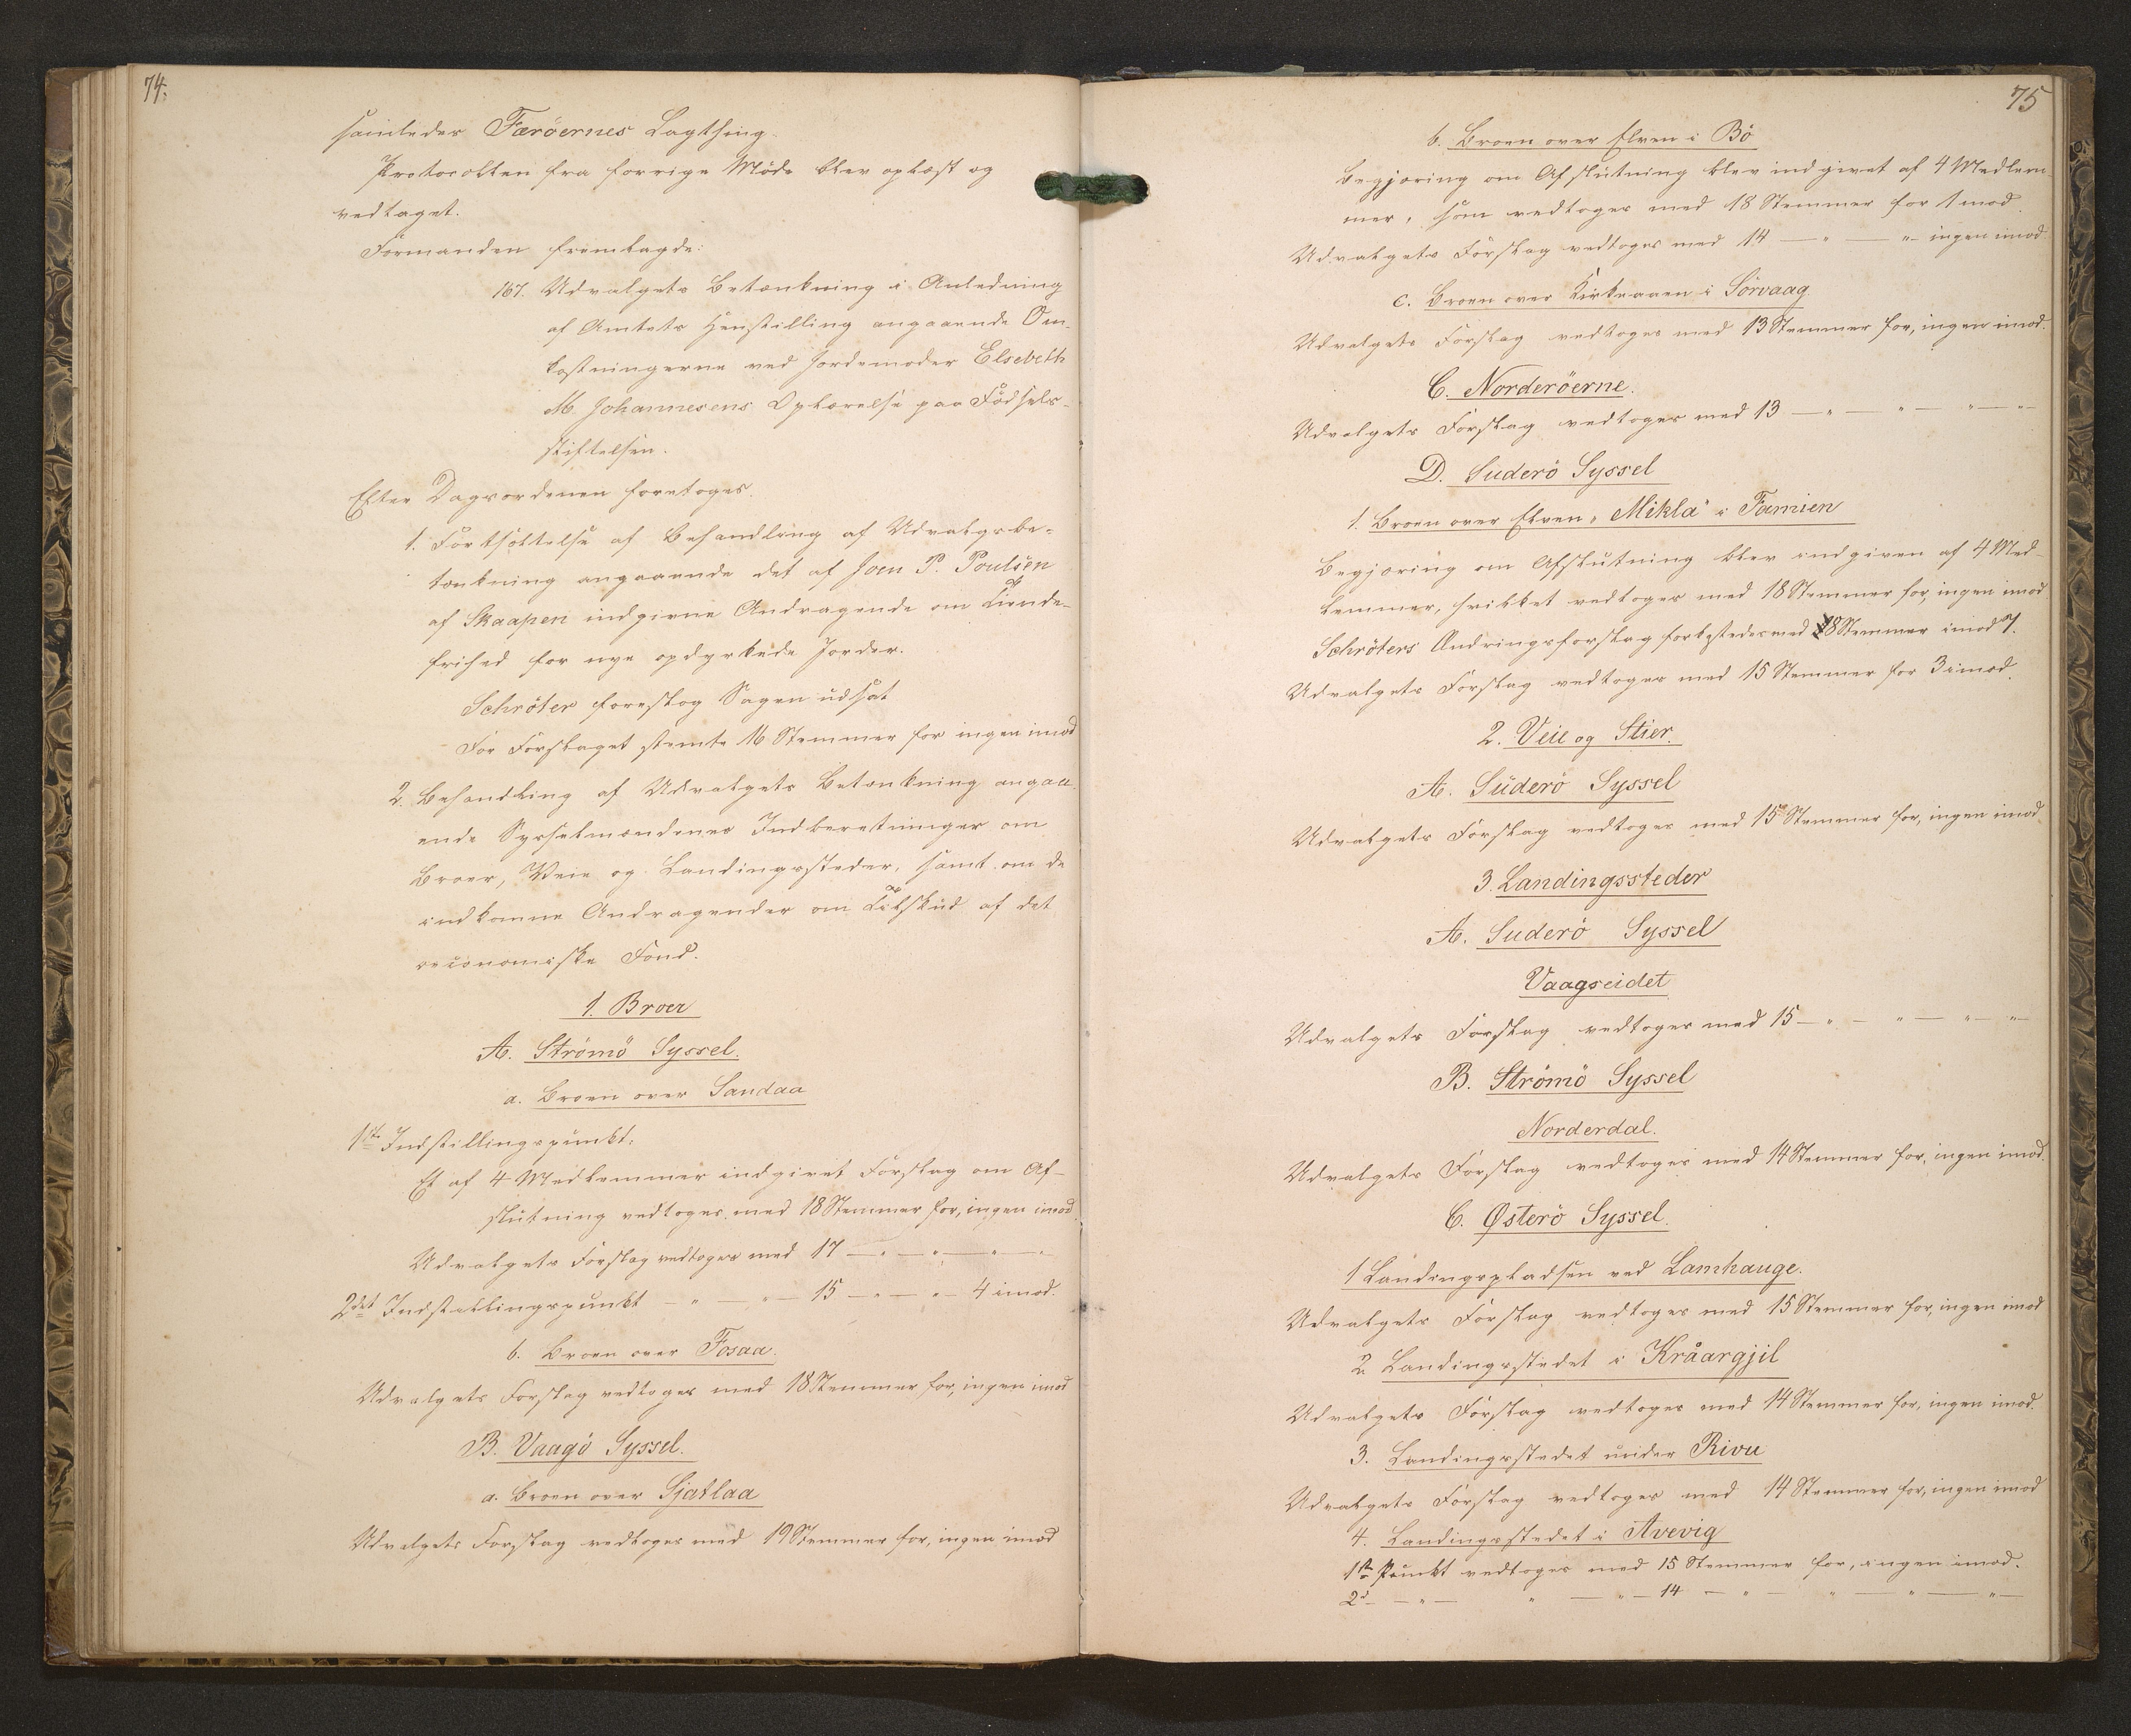 74.
samledes Færöernes Lagthing.
Protocollen fra forrige Möde blev oplæst og
vedtaget.
Formanden fremlagde:
167. Udvalgets Betænkning i Anledning
af Amtets Henstilling angaaende Om-
kostningerne ved Jordemoder Elsebeth
M. Johannesens Oplærelse paa Födsels-
stiftelsen.
Efter Dagsordenen foretoges.
1. Fortsættelse af Behandling af Udvalgsbe-
tænkning angaaende det af Joen P. Poulsen
af Skaapen indgivne Andragende om Tiende-
frihed for nye opdyrkede Jorder.
Schröter foreslog Sagen udsat
For Forslaget stemte 16 Stemmer for ingen imod
2. Behandling af Udvalgets Betænkning angaa-
ende Sysselmændenes Indberetninger om
Broer, Veie og Landingssteder, samt om de
indkomne Andragender om Tilskud af det
oeconomiske Fond.
1. Broer
A. Strömö Syssel.
a. Broen over Sandaa
1ste Indstillingspunkt:
Et af 4 Medlemmer indgivet Forslag om Af-
slutning vedtoges med 18 Stemmer for, ingen imod
Udvalgets Forslag vedtoges med 17 — " — " — " — "
2det Indstillingspunkt — " — " — 15 — " — " — 4 imod.
b. Broen over Fosaa.
Udvalgets Forslag vedtoges med 18 Stemmer for, ingen imod
B. Vaagö Syssel.
a. Broen over Sjatlaa
Udvalgets Forslag vedtoges med 19 Stemmer for, ingen imod
75
b. Broen over Elven i Bö
Begjæring om Afslutning blev indgivet af 4 Medlem-
mer, som vedtoges med 18 Stemmer for 1 imod.
Udvalgets Forslag vedtoges med 14 — " — " — ingen imod
c. Broen over Kirkeaaen i Sörvaag.
Udvalgets Forslag vedtoges med 13 Stemmer for, ingen imod.
C. Norderöerne.
Udvalgets Forslag vedtoges med 13 — " — " — " — "
D. Suderö Syssel
1. Broen over Elven „Mikla" i Famien
Begjæring om Afslutning blev indgiven af 4 Med-
lemmer, hvilket vedtoges med 18 Stemmer for, ingen imod
Schröters Ændringsforslag forkastedes med 8 Stemmer imod 7.
Udvalgets Forslag vedtoges med 15 Stemmer for 3 imod.
2. Veie og Stier.
A. Suderö Syssel
Udvalgets Forslag vedtoges med 15 Stemmer for, ingen imod
3. Landingssteder
A. Suderö Syssel
Vaagseidet
Udvalgets Forslag vedtoges med 15 — " — " — " — "
B. Strömö Syssel
Norderdal.
Udvalgets Forslag vedtoges med 14 Stemmer for, ingen imod.
C. Østerö Syssel.
1 Landingspladsen ved Lamhauge.
Udvalgets Forslag vedtoges med 15 Stemmer for, ingen imod
2. Landingsstedet i Kråargjil
Udvalgets Forslag vedtoges med 14 Stemmer for, ingen imod.
3. Landingsstedet under Rivu
Udvalgets Forslag vedtoges med 14 Stemmer for, ingen imod
4. Landingsstedet i Avevig
1ste Punkt vedtoges med 15 Stemmer for, ingen imod.
2d — " — " — " — 14 — " — " — " — "